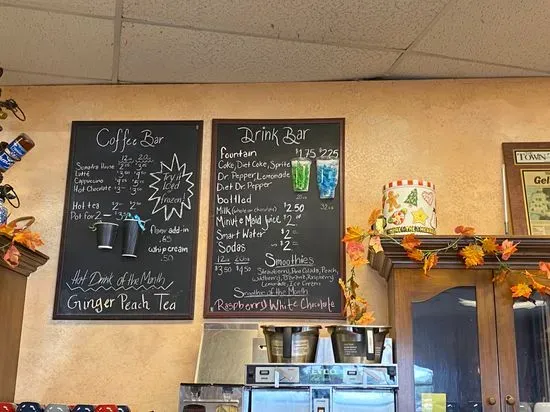 Coffee Bar
12oz 20oz
Sumatra House
Latté
Cappuccino
Hot Chocolate
Hot tea $2
Pot for 2 $3.50
Try it
Iced
or
Frozen
flavor add-in
.65
whip cream
.50
Hot Drink of the Month
Ginger Peach Tea
Drink Bar
fountain $1.75 $2.25
Coke, Diet Coke, Sprite
Dr. Pepper, Lemonade
Diet Dr. Pepper
20oz 32oz
bottled
Milk (white or chocolate) $2.50
Minute Maid Juice $2
Smart Water $2
Sodas $2
12oz 20oz
$3.50 $4.50
Smoothies
Strawberry, Pina Colada, Peach
Lemonade, Ice Cream
Smoothie of the Month
Raspberry White Chocolate
FETCO
TOWN
Gel